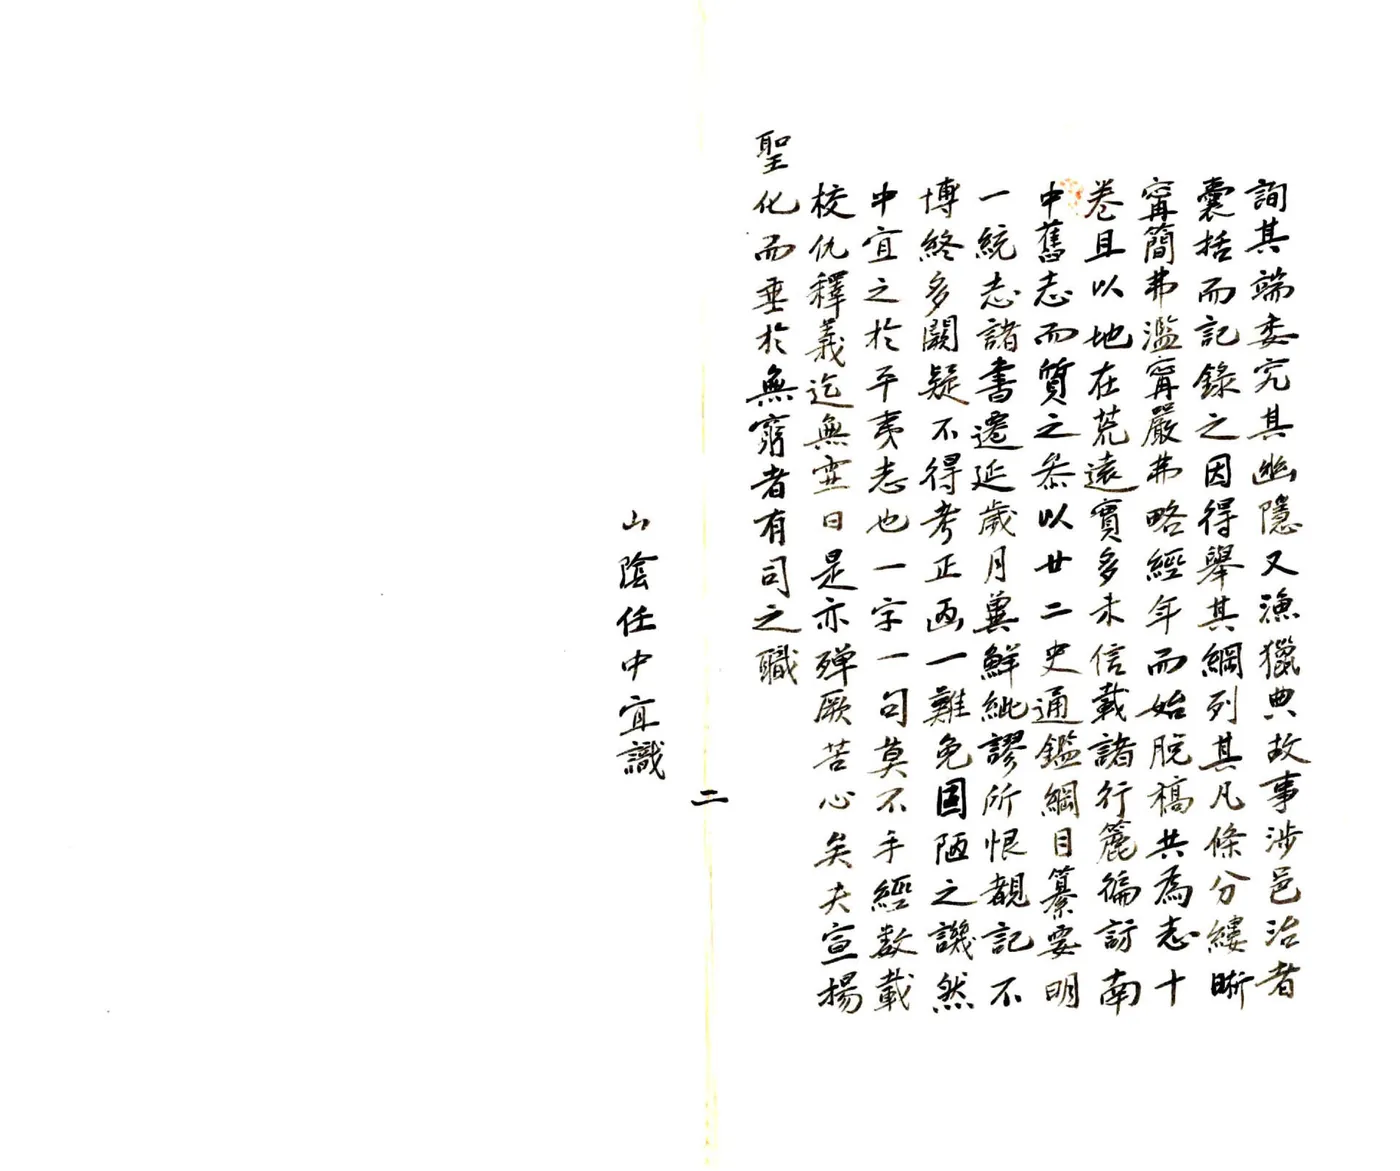 詢其端委究其幽隱又漁獵典故事涉邑治者
囊括而記錄之因得舉其綱列其凡條分縷晰
甯簡弗濫甯嚴弗略經年而始脫稿共為志十
卷且以地在荒遠實多未信載諸行麓徧訪南
中舊志而質之叅以廿二史通鑑綱目纂要明
一統志諸書遷延歲月冀鮮紕謬所恨覩記不
博終多闕疑不得考正画一難免固陋之譏然
中宜之於平夷志也一字一句莫不手經数載
校仇釋義迄無空日是亦殫厥苦心矣夫宣揚
聖化而垂於無窮者有司之職
山陰任中宜識
二